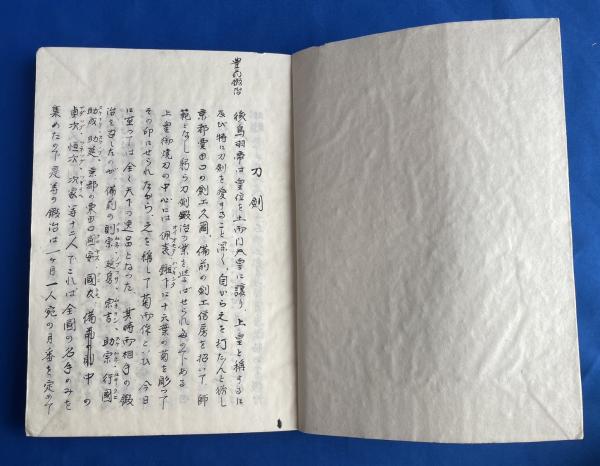 豊前鍛冶
刀剣
後鳥羽帝は皇位を土御門天皇に譲り、上皇と称するに
及び特に刀剣を愛すること深く、自から之を打たんと欲し
京都粟田口の剣工久国、備前の剣工信房を招いて師
範となし躬ら刀剣鍛冶の業を遊ばせられたのである
上皇御焼刀の中心には佩表鎺下に十六葉の菊を彫って
その印にせられたながら、之を称して菊御作といひ今日
に至っては全く天下の逸品となった 其時御相手の鍛
冶を召したのが備前の則宗、延房、宗吉、助宗、行国
助成、助延、京都の粟田口国安、国友、備前の
貞次、恒次、次家等十二人でこれは全国の名手のみを
集めたので是等の鍛冶は一ヶ月一人宛の月番を定めて